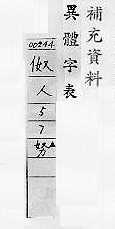 補充資料
異體字表
00244
㐐
人
5
7
努